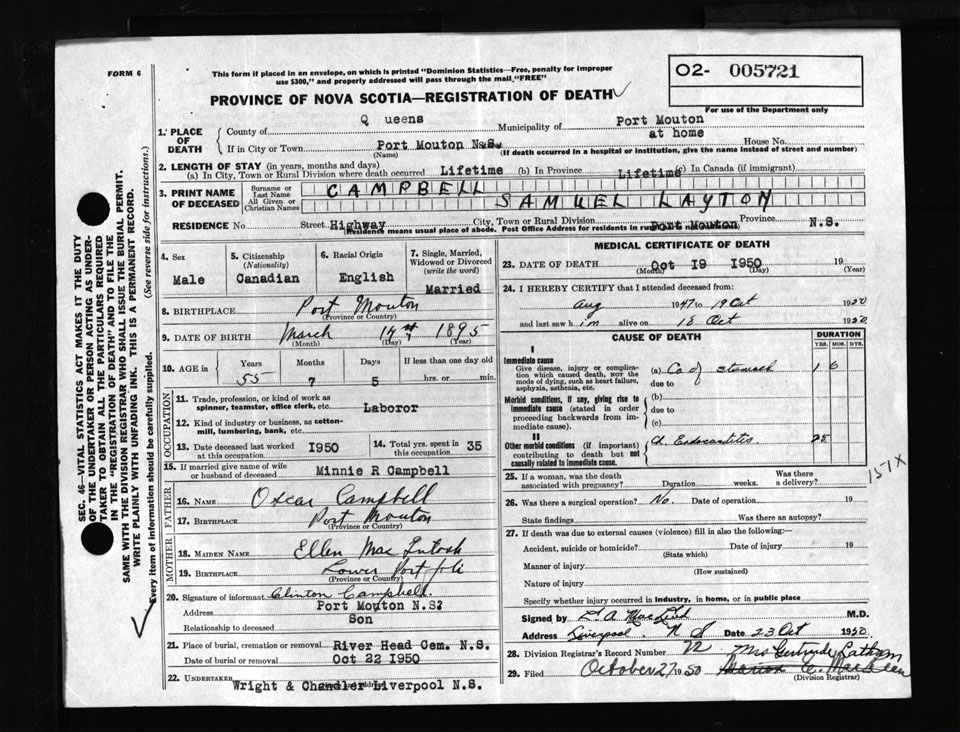 FORM 6
This form if placed in an envelope, on which is printed "Dominion Statistics—Free, penalty for improper
use $300," and properly addressed will pass through the mail "FREE"
O2- 005721
PROVINCE OF NOVA SCOTIA—REGISTRATION OF DEATH
For use of the Department only
1. PLACE OF DEATH
County of Q ueens Municipality of Port Mouton
at home
If in City or Town Port Mouton N.S. House No.
(Name) (If death occurred in a hospital or institution, give the name instead of street and number)
2. LENGTH OF STAY (in years, months and days)
(a) In City, Town or Rural Division where death occurred Lifetime (b) In Province Lifetime (c) In Canada (if immigrant)
3. PRINT NAME OF DECEASED
Surname or Last Name CAMPBELL
All Given or Christian Names SAMUEL LAYTON
RESIDENCE No. Street Highway City, Town or Rural Division Port Mouton Province N.S.
(Residence means usual place of abode. Post Office Address for residents in rural
4. Sex
Male
5. Citizenship
(Nationality)
Canadian
6. Racial Origin
English
7. Single, Married, Widowed or Divorced
(write the word)
Married
8. BIRTHPLACE Port Mouton
(Province or Country)
9. DATE OF BIRTH March 14th 1895
(Month) (Day) (Year)
10. AGE in
Years Months Days If less than one day old
55 7 5 hrs. or min.
OCCUPATION
11. Trade, profession, or kind of work as
spinner, teamster, office clerk, etc. Laboror
12. Kind of industry or business, as cotton-
mill, lumbering, bank, etc.
13. Date deceased last worked at this occupation I950
14. Total yrs. spent in this occupation 35
15. If married give name of wife
or husband of deceased Minnie R Campbell
FATHER
16. NAME Oscar Campbell
17. BIRTHPLACE Port Mouton
(Province or Country)
MOTHER
18. MAIDEN NAME Ellen Mac Intosh
19. BIRTHPLACE Lower Port
(Province or Country)
20. Signature of informant Clinton Campbell.
Address Port Mouton N.S?
Relationship to deceased Son
21. Place of burial, cremation or removal River Head Cem. N.S.
Date of burial or removal Oct 22 I950
22. UNDERTAKER Wright & Chandler Liverpool N.S.
MEDICAL CERTIFICATE OF DEATH
23. DATE OF DEATH Oct I9 I950 19
(Month) (Day) (Year)
24. I HEREBY CERTIFY that I attended deceased from:
Aug 1947 to 19 Oct 1950
and last saw him alive on 18 Oct 1950
CAUSE OF DEATH
DURATION
YRS. MOS. DYS.
I
Immediate cause
Give disease, injury or complica-
tion which caused death, NOT the
mode of dying, such as heart failure,
asphyxia, asthenia, etc.
(a) Ca of stomach 1 6
due to
Morbid conditions, if any, giving rise to
immediate cause (stated in order
proceeding backwards from im-
mediate cause).
(b)
due to
(c)
II
Other morbid conditions (if important)
contributing to death but not
causally related to immediate cause.
Endocarditis 25
157X
25. If a woman, was the death
associated with pregnancy? Duration weeks. Was there a delivery?
26. Was there a surgical operation? No. Date of operation 19
State findings Was there an autopsy?
27. If death was due to external causes (violence) fill in also the following:—
Accident, suicide or homicide? Date of injury 19
(State which)
Manner of injury
(How sustained)
Nature of injury
Specify whether injury occurred in industry, in home, or in public place
Signed by M.D.
Address Liverpool N S Date 23 Oct 1950.
28. Division Registrar's Record Number 72
Mrs Gertrude
29. Filed October 27 1950
(Division Registrar)
SEC. 46—VITAL STATISTICS ACT MAKES IT THE DUTY
OF THE UNDERTAKER OR PERSON ACTING AS UNDER-
TAKER TO OBTAIN ALL THE PARTICULARS REQUIRED
IN THE "REGISTRATION OF DEATH" AND TO FILE THE
SAME WITH THE DIVISION REGISTRAR WHO SHALL ISSUE THE BURIAL PERMIT.
WRITE PLAINLY WITH UNFADING INK. THIS IS A PERMANENT RECORD.
Every item of information should be carefully supplied. (See reverse side for instructions.)